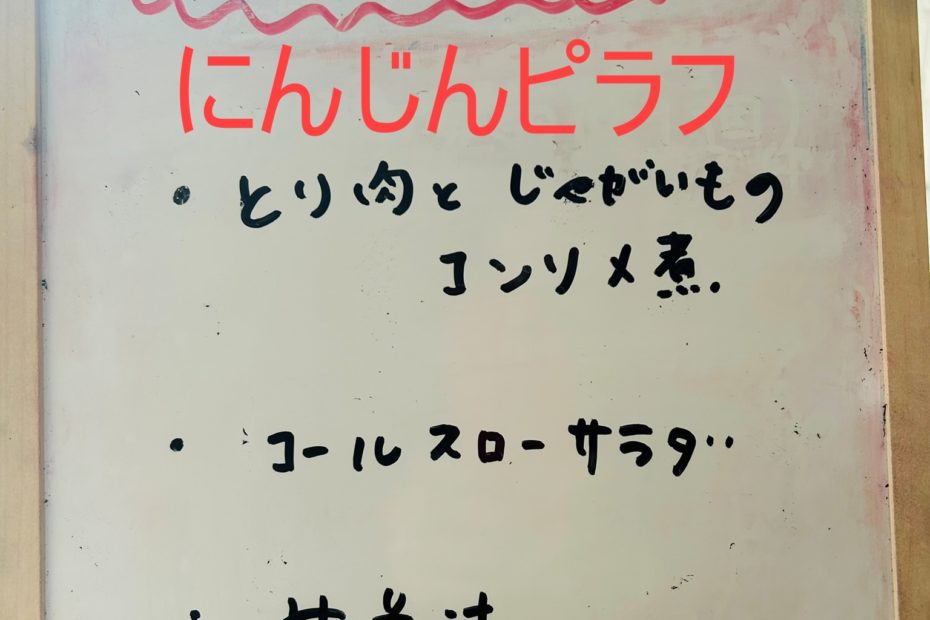 にんじんピラフ
・とり肉とじゃがいもの
コンソメ煮.
・コールスローサラダ